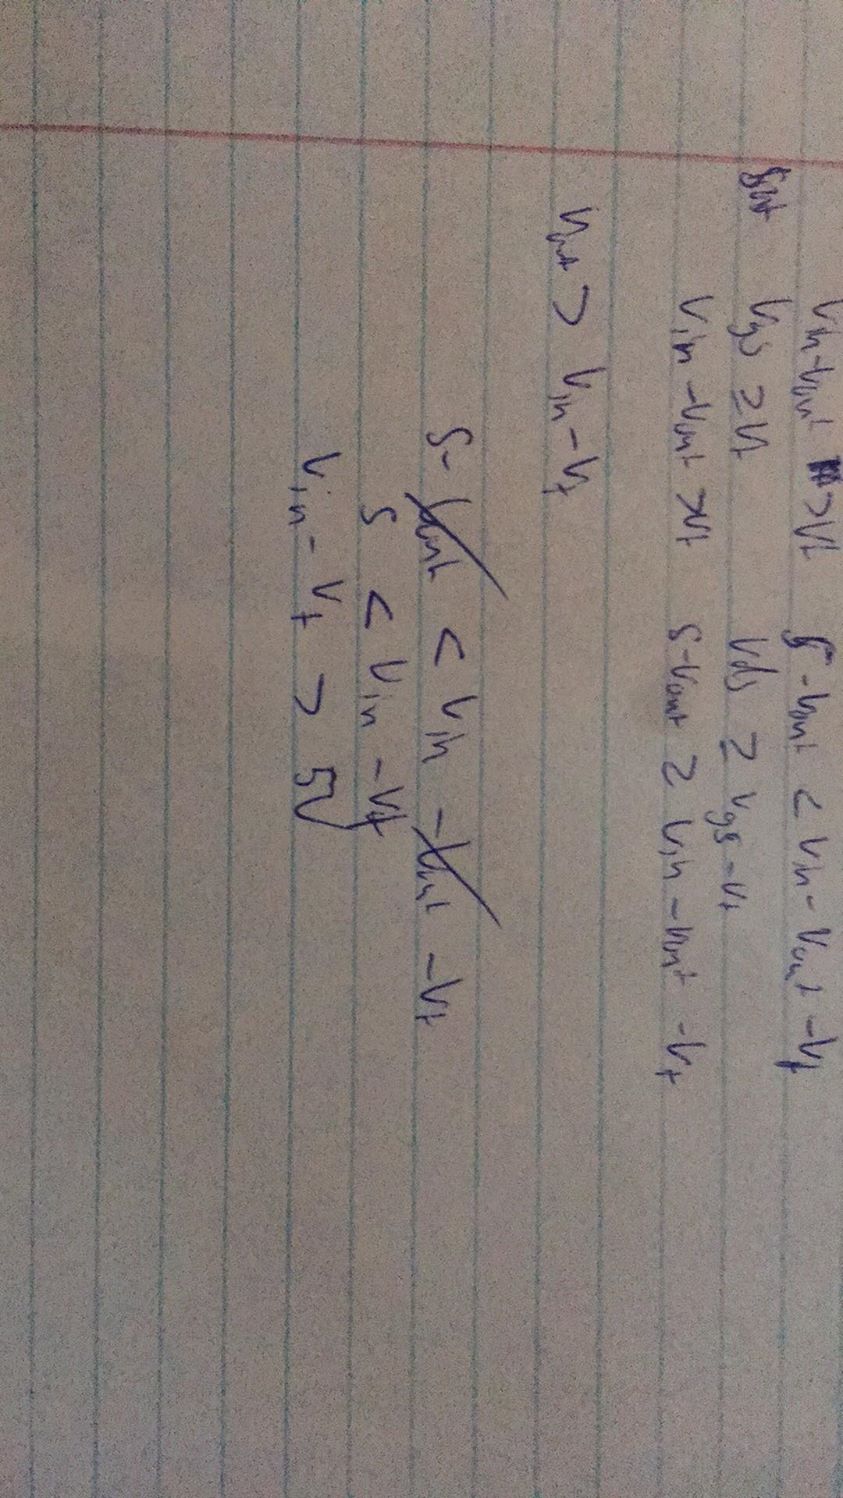 Vin - Vout > Vt   5 - Vout < Vin - Vout - Vt
sat   Vgs ≥ Vt   Vds ≥ Vgs - Vt
Vin - Vout > Vt   5 - Vout ≥ Vin - Vout - Vt
Vout > Vin - Vt
5 - Vout < Vin - Vout - Vt
5 < Vin - Vt
Vin - Vt > 5V